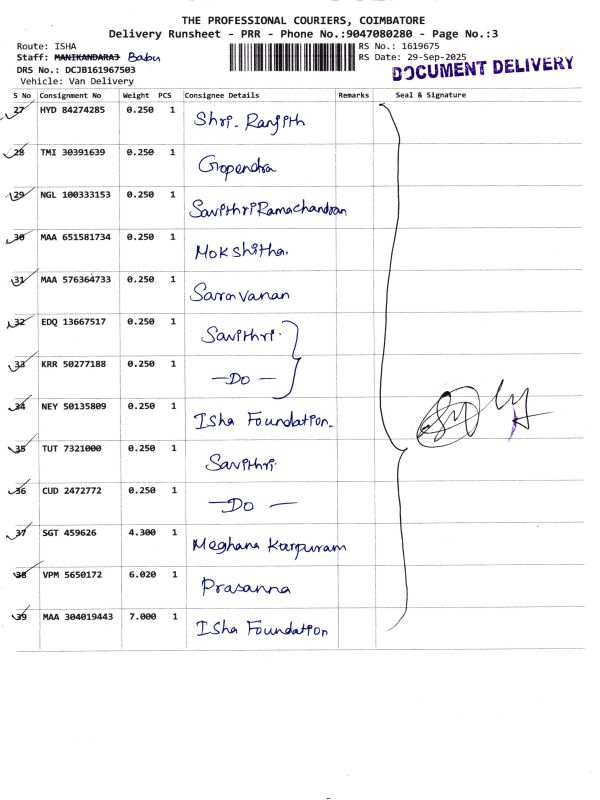 THE PROFESSIONAL COURIERS, COIMBATORE
Delivery Runsheet - PRR - Phone No.:9047080280 - Page No.:3
Route: ISHA
RS No.: 1619675
Staff: MANIKANDARAJ Babu
RS Date: 29-Sep-2025
DRS No.: DCJB161967503
DOCUMENT DELIVERY
Vehicle: Van Delivery
S No Consignment No Weight PCS Consignee Details Remarks Seal & Signature
27 HYD 84274285 0.250 1 Shri. Ranjith
28 TMI 30391639 0.250 1 Gopendra
29 NGL 100333153 0.250 1 Savithri Ramachandran
30 MAA 651581734 0.250 1 Mokshitha.
31 MAA 576364733 0.250 1 Saravanan
32 EDQ 13667517 0.250 1 Savithri.
33 KRR 50277188 0.250 1 —Do—
34 NEY 50135809 0.250 1 Isha Foundation.
35 TUT 7321000 0.250 1 Savithri.
36 CUD 2472772 0.250 1 —Do—
37 SGT 459626 4.300 1 Meghana Karpuram
38 VPM 5650172 6.020 1 Prasanna
39 MAA 304019443 7.000 1 Isha Foundation